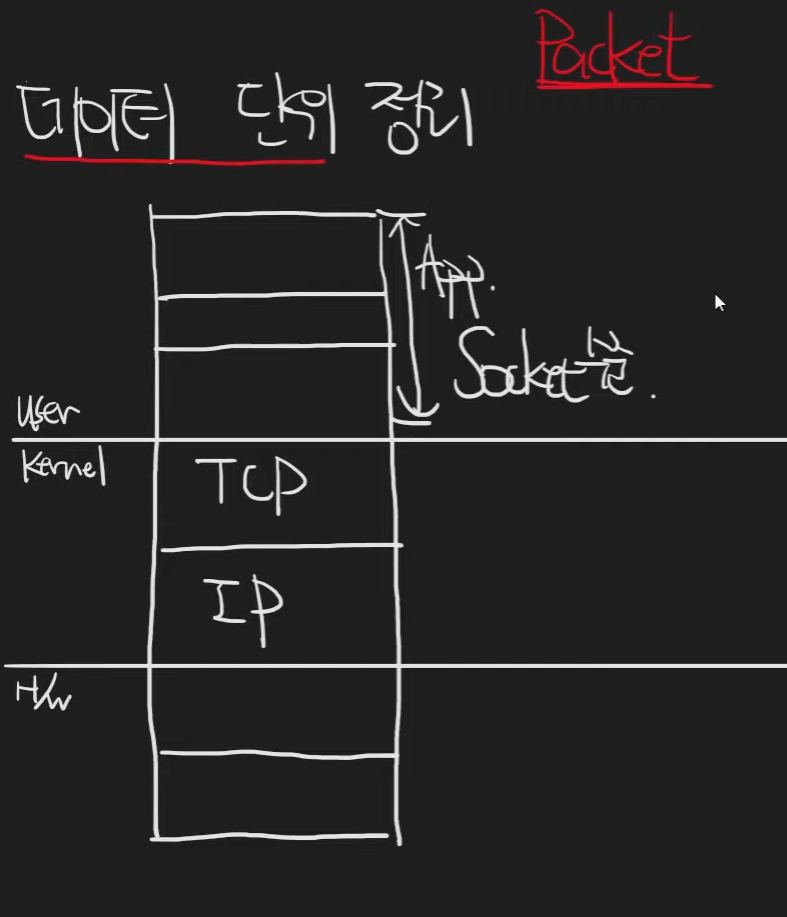 Packet
데이터 단위 정리
App.
Socket수준.
User
Kernel
TCP
IP
H/W